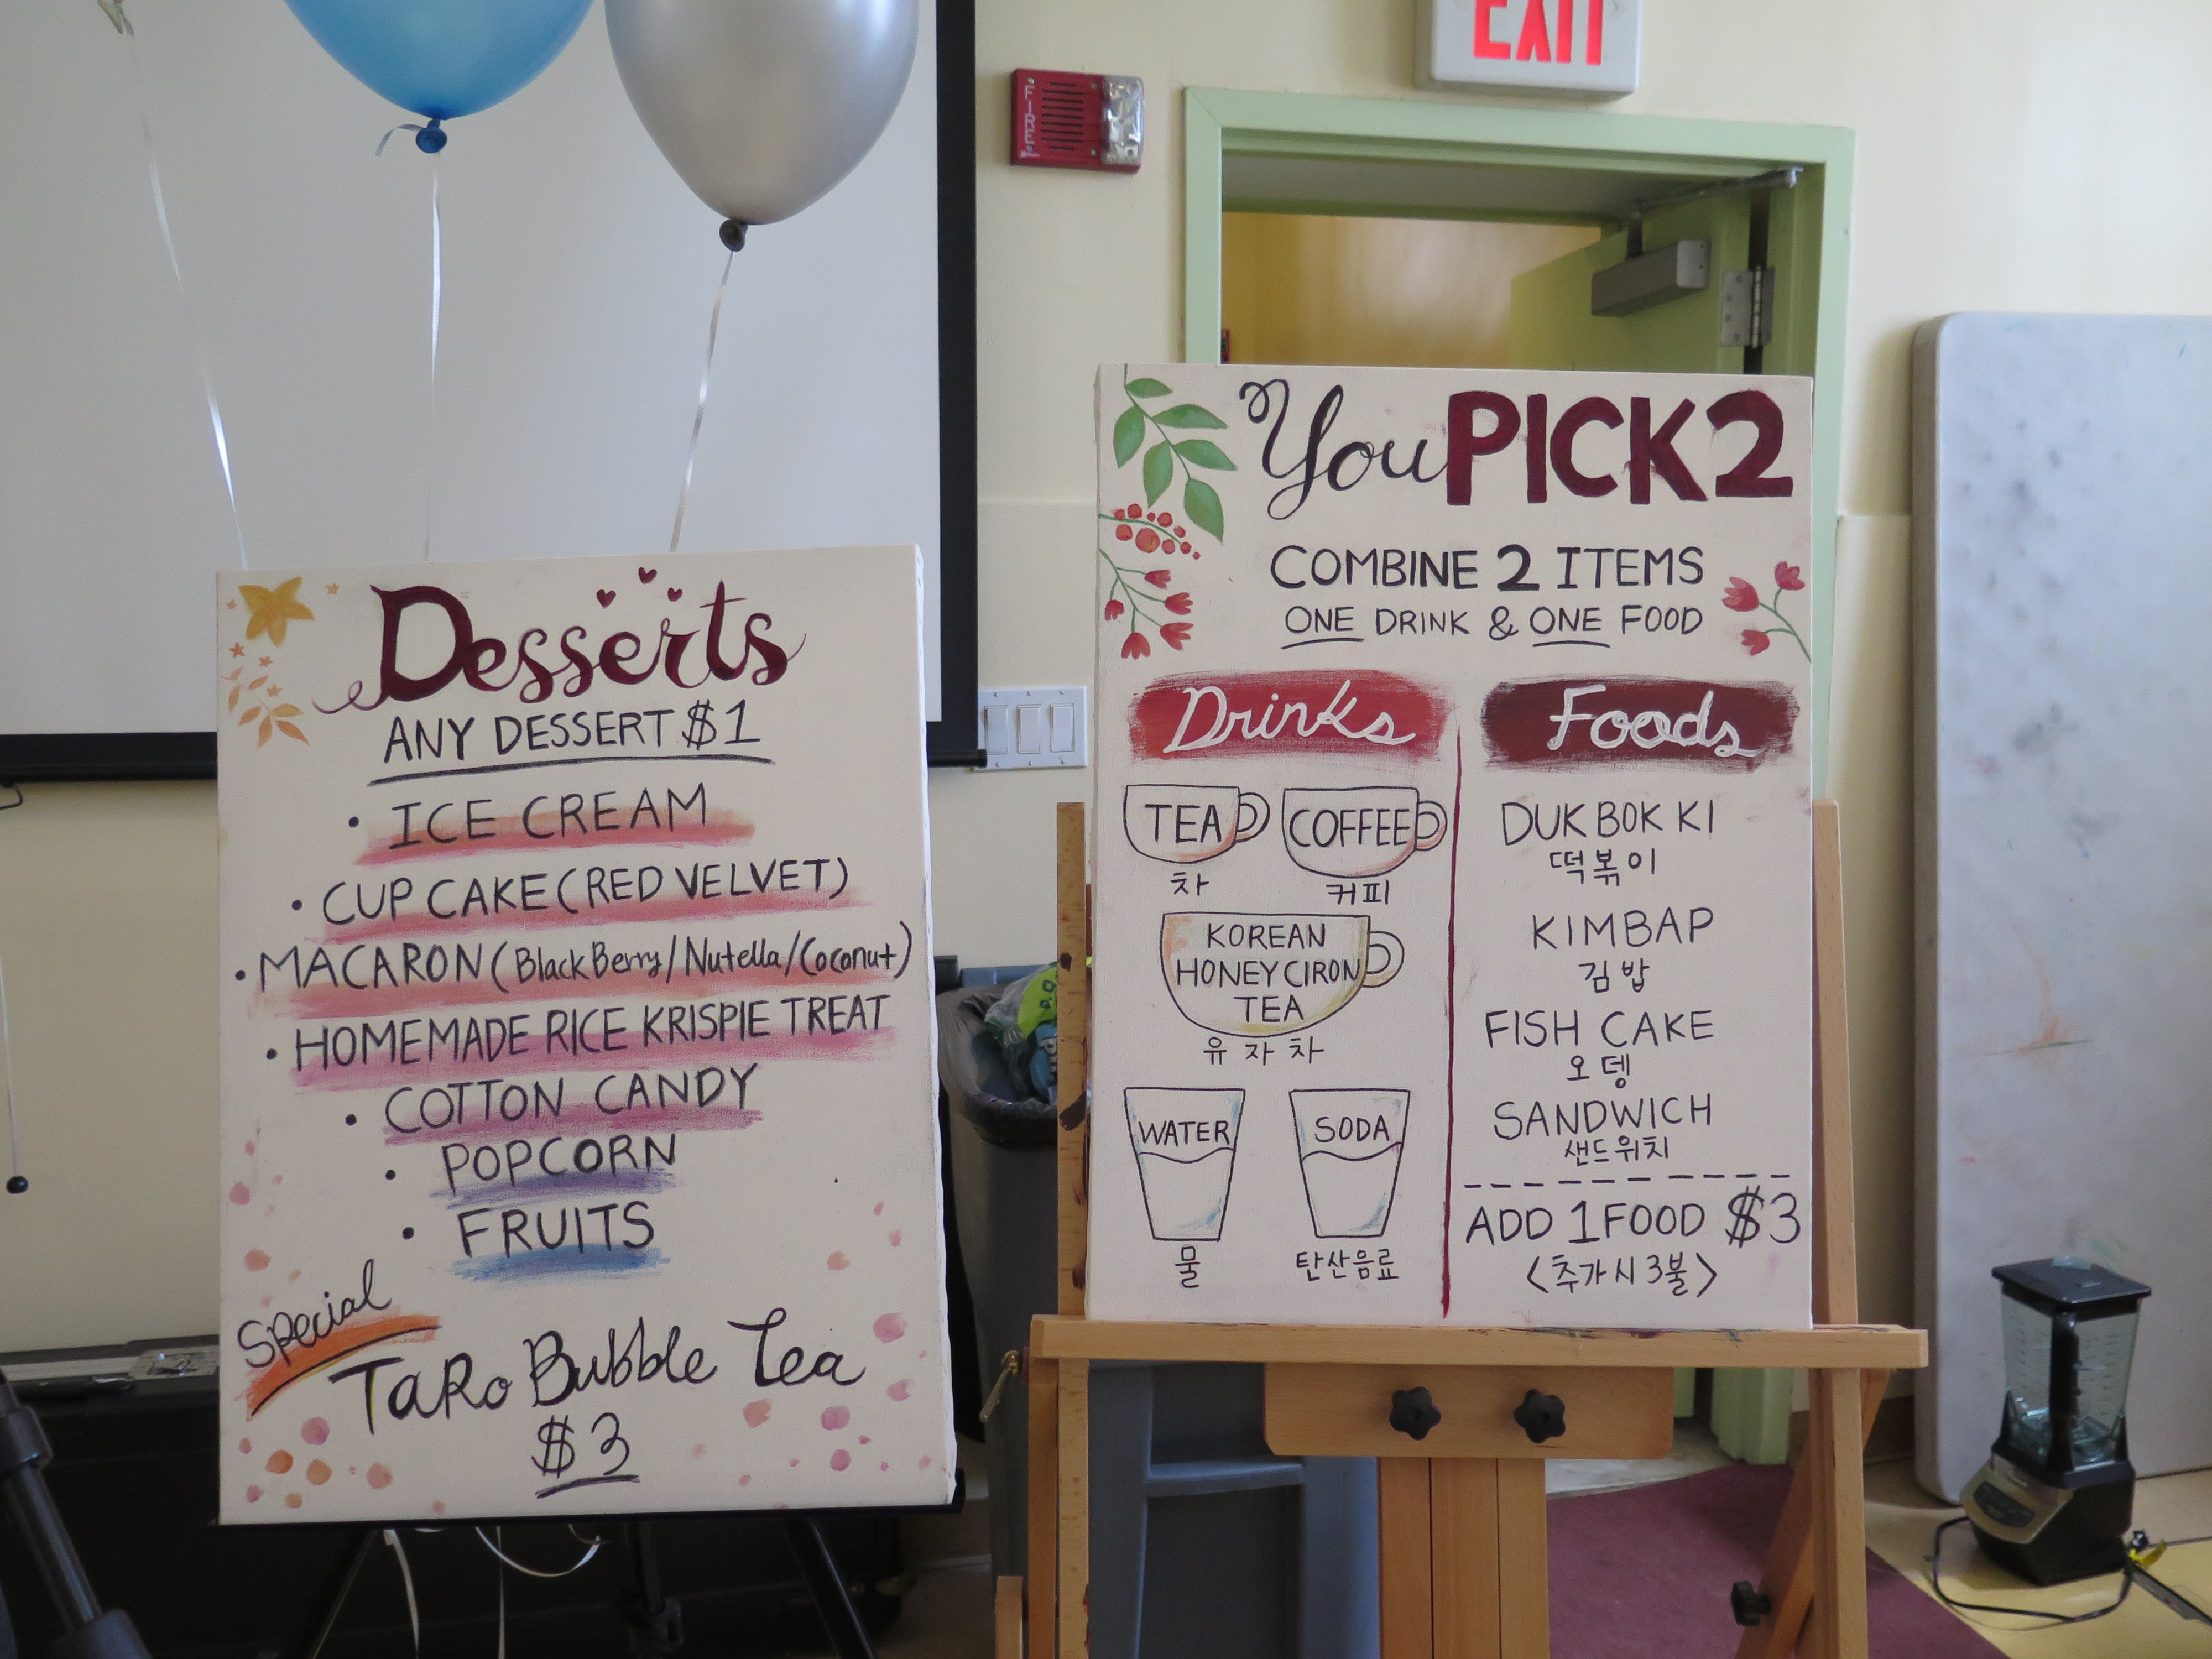 EXIT
FIRE
Desserts
ANY DESSERT $1
• ICE CREAM
• CUP CAKE (RED VELVET)
• MACARON (BlackBerry/Nutella/Coconut)
• HOMEMADE RICE KRISPIE TREAT
• COTTON CANDY
• POPCORN
• FRUITS
Special
TaRo Bubble Tea
$3
You PICK 2
COMBINE 2 ITEMS
ONE DRINK & ONE FOOD
Drinks
TEA
차
COFFEE
커피
KOREAN
HONEY CIRON
TEA
유자차
WATER
물
SODA
탄산음료
Foods
DUK BOK KI
떡볶이
KIMBAP
김밥
FISH CAKE
오뎅
SANDWICH
샌드위치
ADD 1 FOOD $3
<추가시 3불>